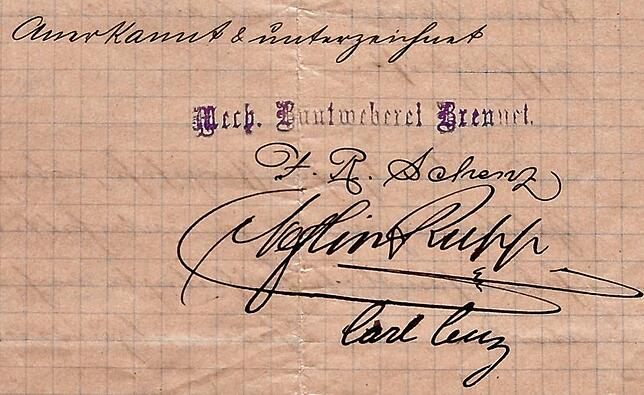 Anerkannt & unterzeichnet
Mech. Buntweberei Brennet.
F. R. Schenz
Rupp
Carl Lenz